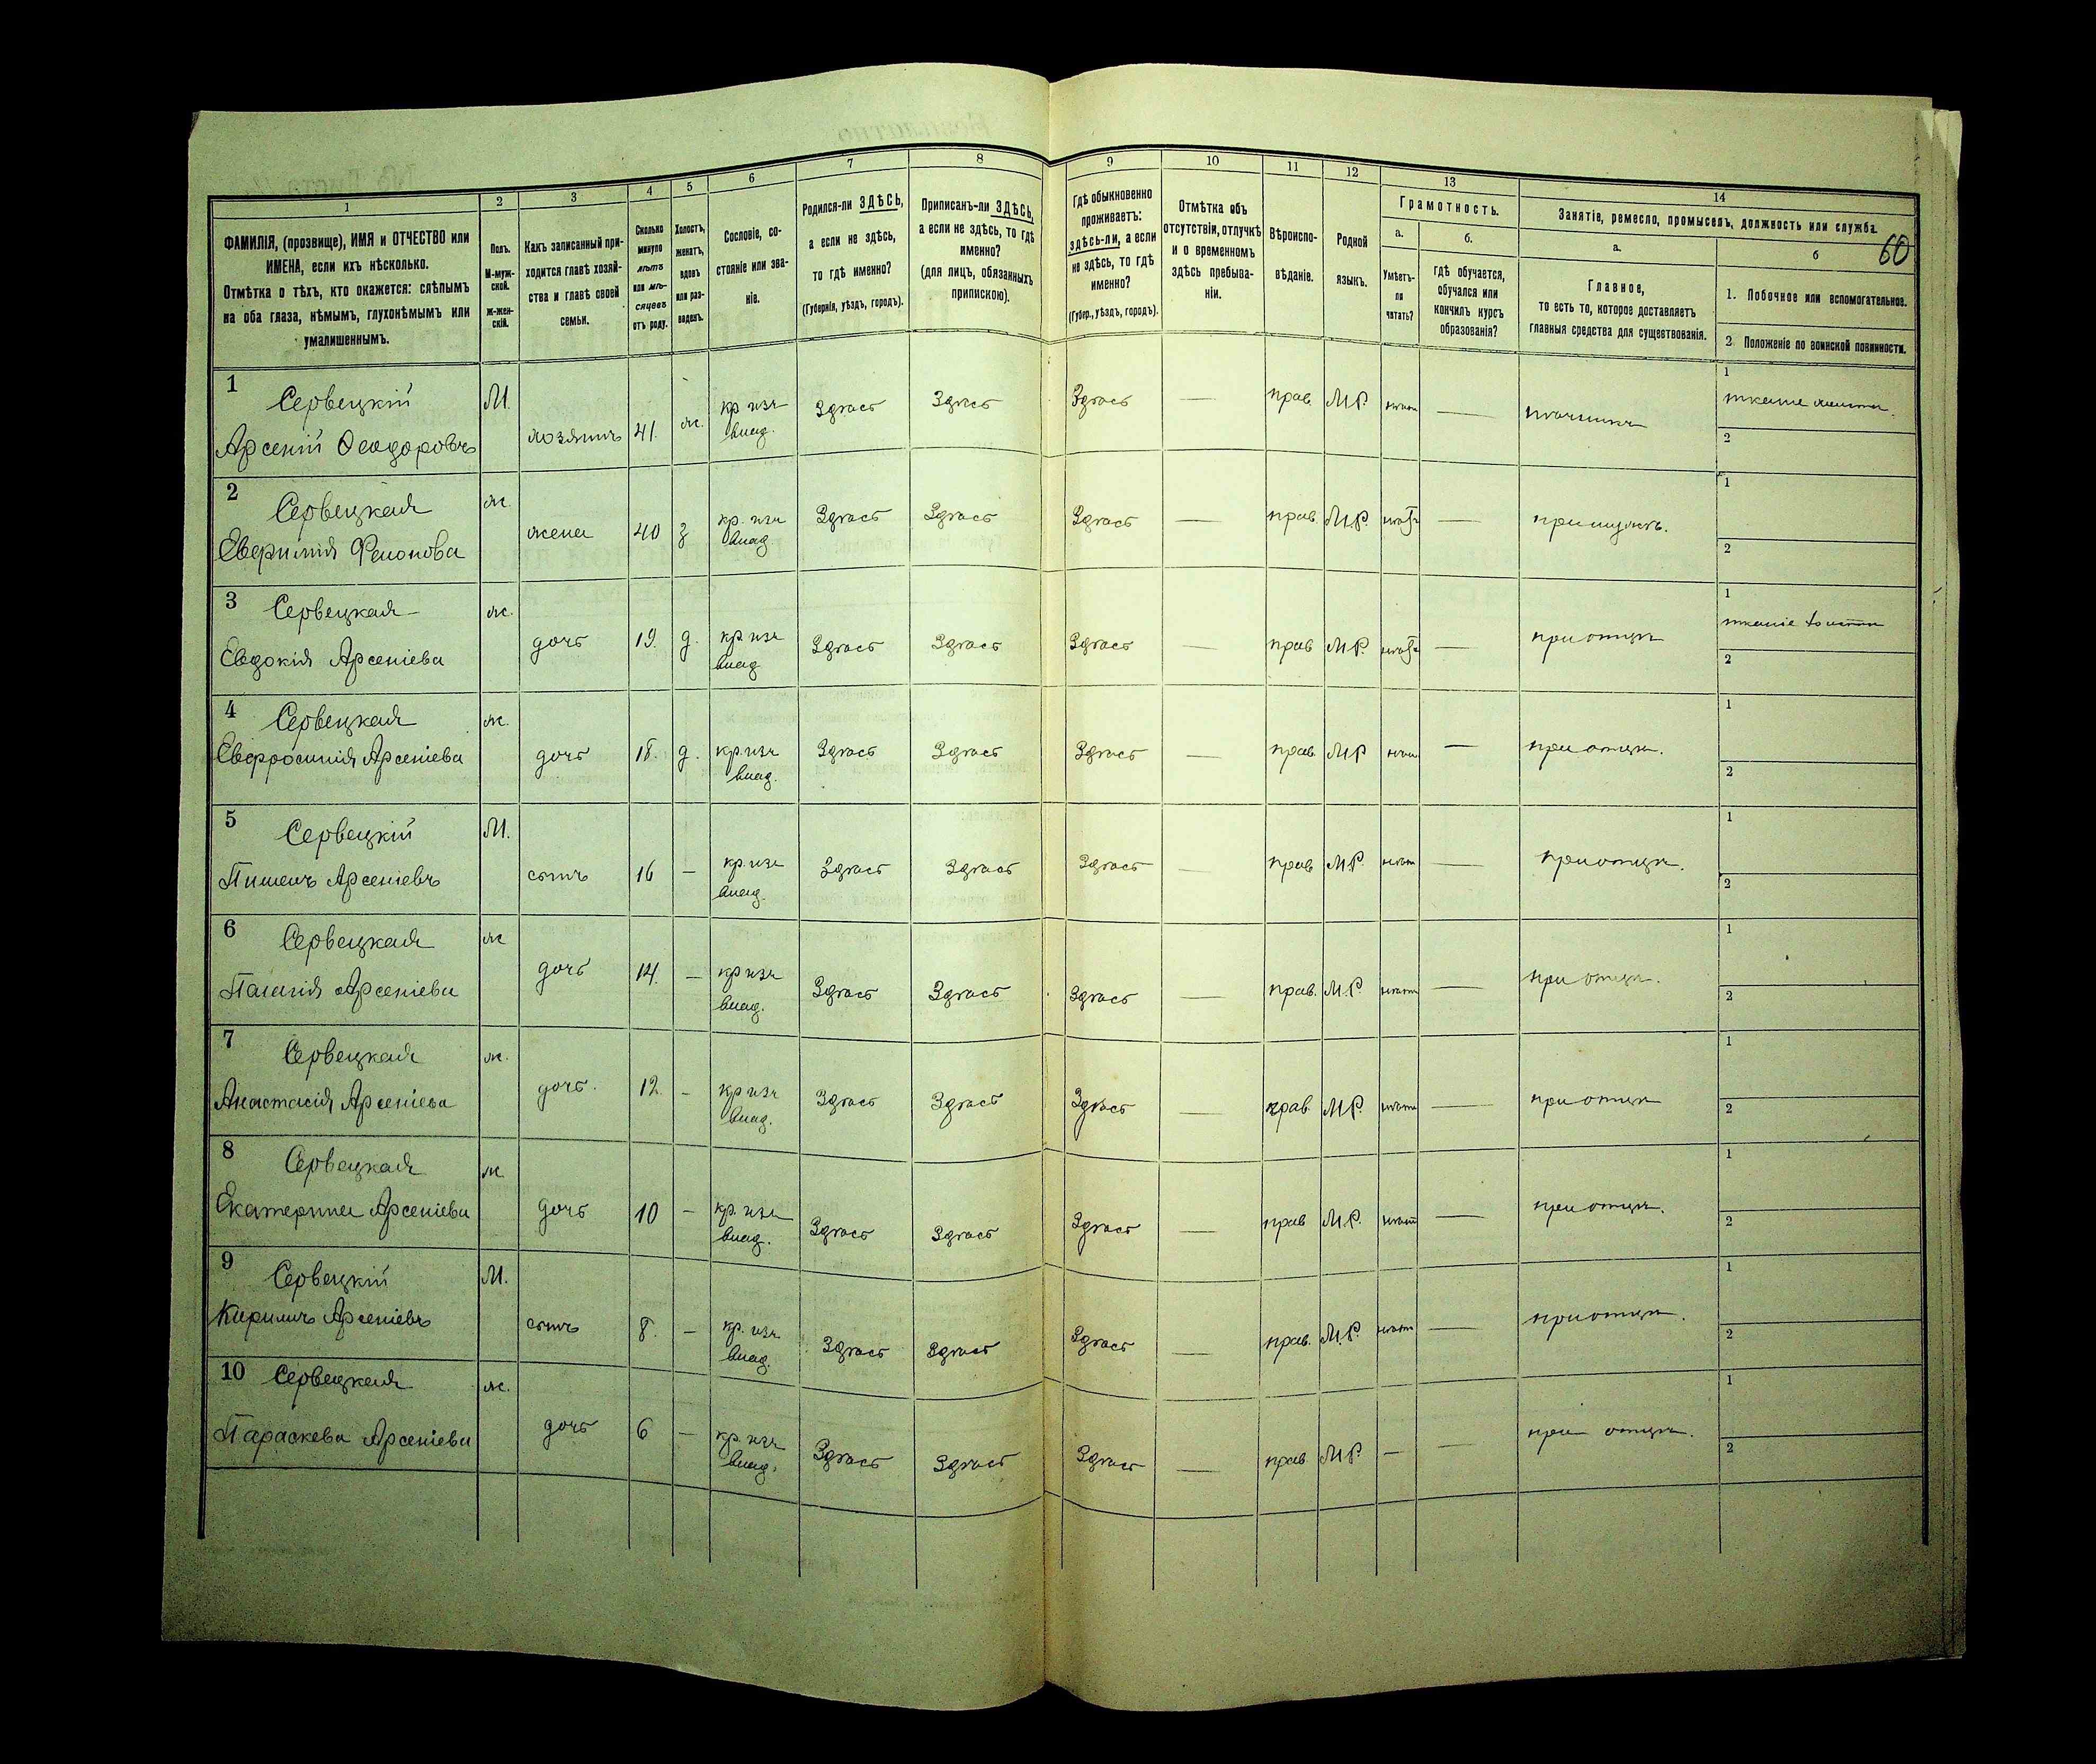 1 2 3 4 5 6 7 8 9 10 11 12 13 14
60
ФАМИЛІЯ, (прозвище), ИМЯ и ОТЧЕСТВО или
ИМЕНА, если ихъ нѣсколько.
Отмѣтка о тѣхъ, кто окажется: слѣпымъ
на оба глаза, нѣмымъ, глухонѣмымъ или
умалишеннымъ.
Полъ.
М-муж-
ской.
Ж-жен-
скій.
Какъ записанный при-
ходится главѣ хозяй-
ства и главѣ своей
семьи.
Сколько
минуло
лѣтъ
или мѣ-
сяцевъ
отъ роду.
Холостъ,
женатъ,
вдовъ
или раз-
веденъ.
Сословіе, со-
стояніе или зва-
ніе.
Родился-ли ЗДѢСЬ,
а если не здѣсь,
то гдѣ именно?
(Губернія, уѣздъ, городъ).
Приписанъ-ли ЗДѢСЬ,
а если не здѣсь, то гдѣ
именно?
(для лицъ, обязанныхъ
припискою).
Гдѣ обыкновенно
проживаетъ:
здѣсь-ли, а если
не здѣсь, то гдѣ
именно?
(Губер., уѣздъ, городъ).
Отмѣтка объ
отсутствіи, отлучкѣ
и о временномъ
здѣсь пребыва-
ніи.
Вѣроиспо-
вѣданіе.
Родной
языкъ.
Грамотность.
а.
Умѣетъ-
ли
читать?
б.
гдѣ обучается,
обучался или
кончилъ курсъ
образованія?
Занятіе, ремесло, промыселъ, должность или служба.
а.
Главное,
то есть то, которое доставляетъ
главныя средства для существованія.
б
1. Побочное или вспомогательное.
2 Положеніе по воинской повинности.
1 Сервецкій М. 1
Арсеній Ѳеодоровъ хозяинъ 41. ж. кр изъ Здѣсь Здѣсь Здѣсь — прав. М.Р. —
влад.
2
2 Сервецкая ж. 1
Евфимія жена 40 з кр. изъ Здѣсь Здѣсь Здѣсь — прав. М.Р. —
влад. 2
3 Сервецкая ж. 1
Евдокія Арсеніева дочь 19. д. кр. изъ Здѣсь Здѣсь Здѣсь — прав М.Р. — при отцѣ
влад 2
4 Сервецкая ж. 1
Евфросинія Арсеніева дочь 18. д. кр. изъ Здѣсь Здѣсь Здѣсь — прав. М.Р — при отцѣ.
влад. 2
5 Сервецкій М. 1
Пименъ Арсеніевъ сынъ 16 — кр. изъ Здѣсь Здѣсь Здѣсь — прав М.Р. — при отцѣ.
влад. 2
6 Сервецкая ж 1
Пелагія Арсеніева дочь 14. — кр изъ Здѣсь Здѣсь Здѣсь — прав. М.Р. — при отцѣ.
влад. 2
7 Сервецкая ж. 1
Анастасія Арсеніева дочь. 12 - кр изъ Здѣсь Здѣсь Здѣсь — прав М.Р. — при отцѣ
влад. 2
8 Сервецкая ж. 1
Екатерина Арсеніева дочь 10 - кр. изъ Здѣсь Здѣсь Здѣсь — прав М.Р. — при отцѣ.
влад. 2
9 Сервецкій М. 1
Кирилъ Арсеніевъ сынъ 8. — кр. изъ Здѣсь Здѣсь Здѣсь — прав. М.Р. — при отцѣ.
влад. 2
10 Сервецкая ж. 1
Параскева Арсеніева дочь 6 — кр. изъ Здѣсь Здѣсь Здѣсь — прав М.Р. — — при отцѣ.
влад. 2